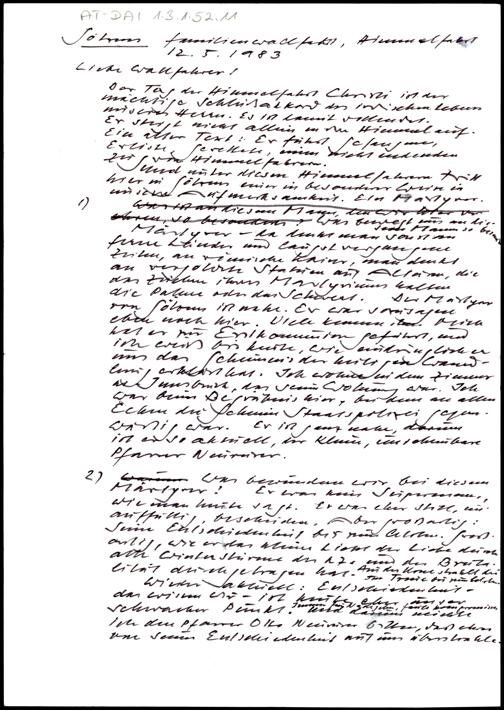 AT-DAI 1.3.1.52.11
Götzens Familienwallfahrt, Himmelfahrt
12.5.1983
Liebe Wallfahrer!
Der Tag der Himmelfahrt Christi ist der
mächtige Schlußakkord des irdischen Lebens
unseres Herrn. Es ist damit vollendet.
Er steigt nicht allein in den Himmel auf.
Ein alter Text: Er führt Gefangene,
Erlöste, Gerettete, einen nicht endenden
Zug von Himmelfahrern.
Und unter diesen Himmelfahrern tritt
hier in Götzens einer in besonderer Weise in
unsere Aufmerksamkeit. Ein Märtyrer.
1) Was ist an diesem Mann,
so besonders? Was bewegt uns an die-
sem Mann so
Märtyrer - da denkt man sonst an
ferne Länder und längst vergangene
Zeiten, an römische Kaiser, man denkt
an vergoldete Statuen auf Altären, die
das Zeichen ihres Martyriums halten
die Palme oder das Schwert. Der Märtyrer
von Götzens ist nahe. Er war sozusagen
eben noch hier. Viele kennen ihn. Mich
hat er zur Erstkommunion geführt, und
ich weiß bis heute, wie eindringlich er
uns das Geheimnis der heiligen Wand-
lung erklärt hat. Ich wohne in den Zimmern
in Innsbruck, das seine Wohnung war. Ich
war beim Begräbnis hier, bei dem an allen
Ecken die Geheime Staatspolizei gegen-
wärtig war. Er ist ganz nahe, darum
ist er so aktuell, der kleine, unscheinbare
Pfarrer Neururer.
2) Warum Was bewundern wir bei diesem
Märtyrer? Er war kein Supermann,
wie man heute sagt. Er war eher still, un-
auffällig, bescheiden. Aber großartig:
Seine Entschiedenheit bis zum Letzten. Groß-
artig, wie er das kleine Licht der Liebe durch
alle Winterstürme des KZs und der Bruta-
lität durchgetragen hat.
Wieder aktuell: Entschiedenheit -
das wissen wir - ist heute eher unser
schwacher Punkt. Und darum möchte
ich den Pfarrer Otto Neururer bitten, daß etwas
von seiner Entschiedenheit auf uns überstrahle.